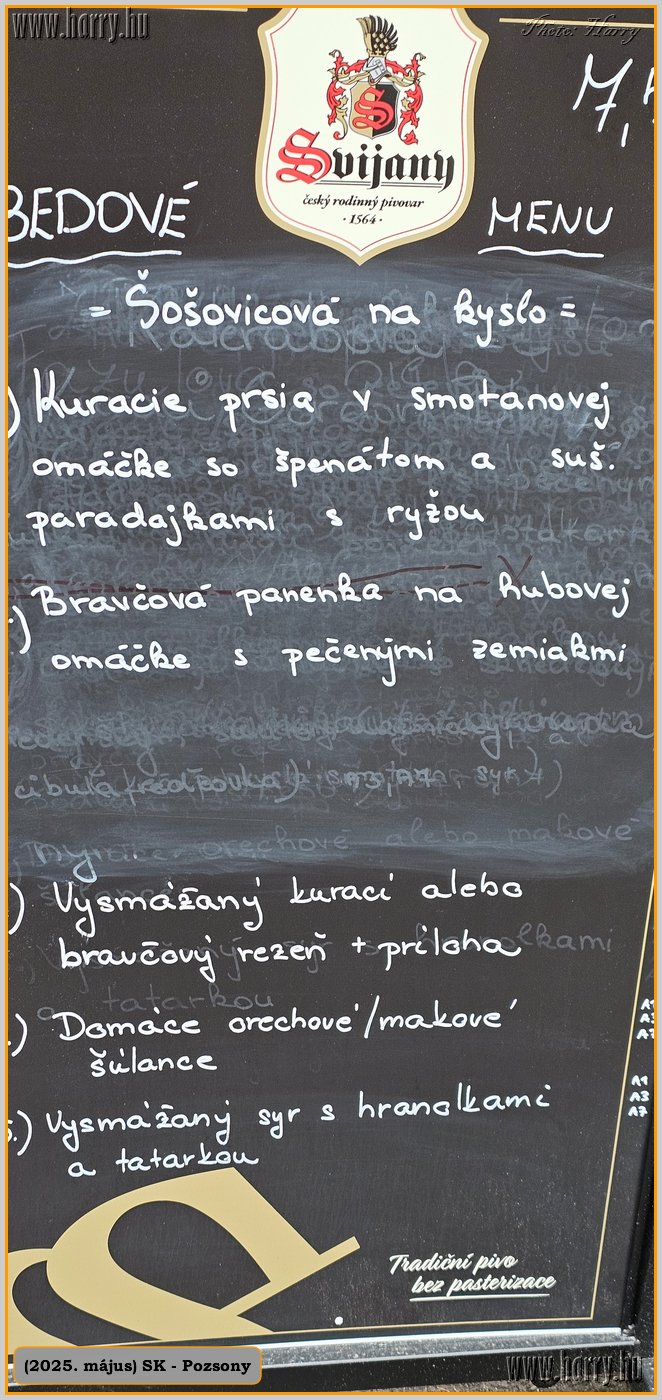 www.harry.hu
Photo: Harry
Svijany
český rodinný pivovar
· 1564 ·
BEDOVÉ MENU
= Šošovicová na kyslo =
) Kuracie prsia v smotanovej
omáčke so špenátom a suš.
paradajkami s ryžou
) Bravčová panenka na hubovej
omáčke s pečenými zemiakmi
) Vysmážaný kurací alebo
bravčový rezeň + príloha
.) Domáce orechové/makové
šúlance
5.) Vysmážaný syr s hranolkami
a tatarkou
A1
A3
A7
A1
A3
A7
Tradiční pivo
bez pasterizace
(2025. május) SK - Pozsony
www.harry.hu